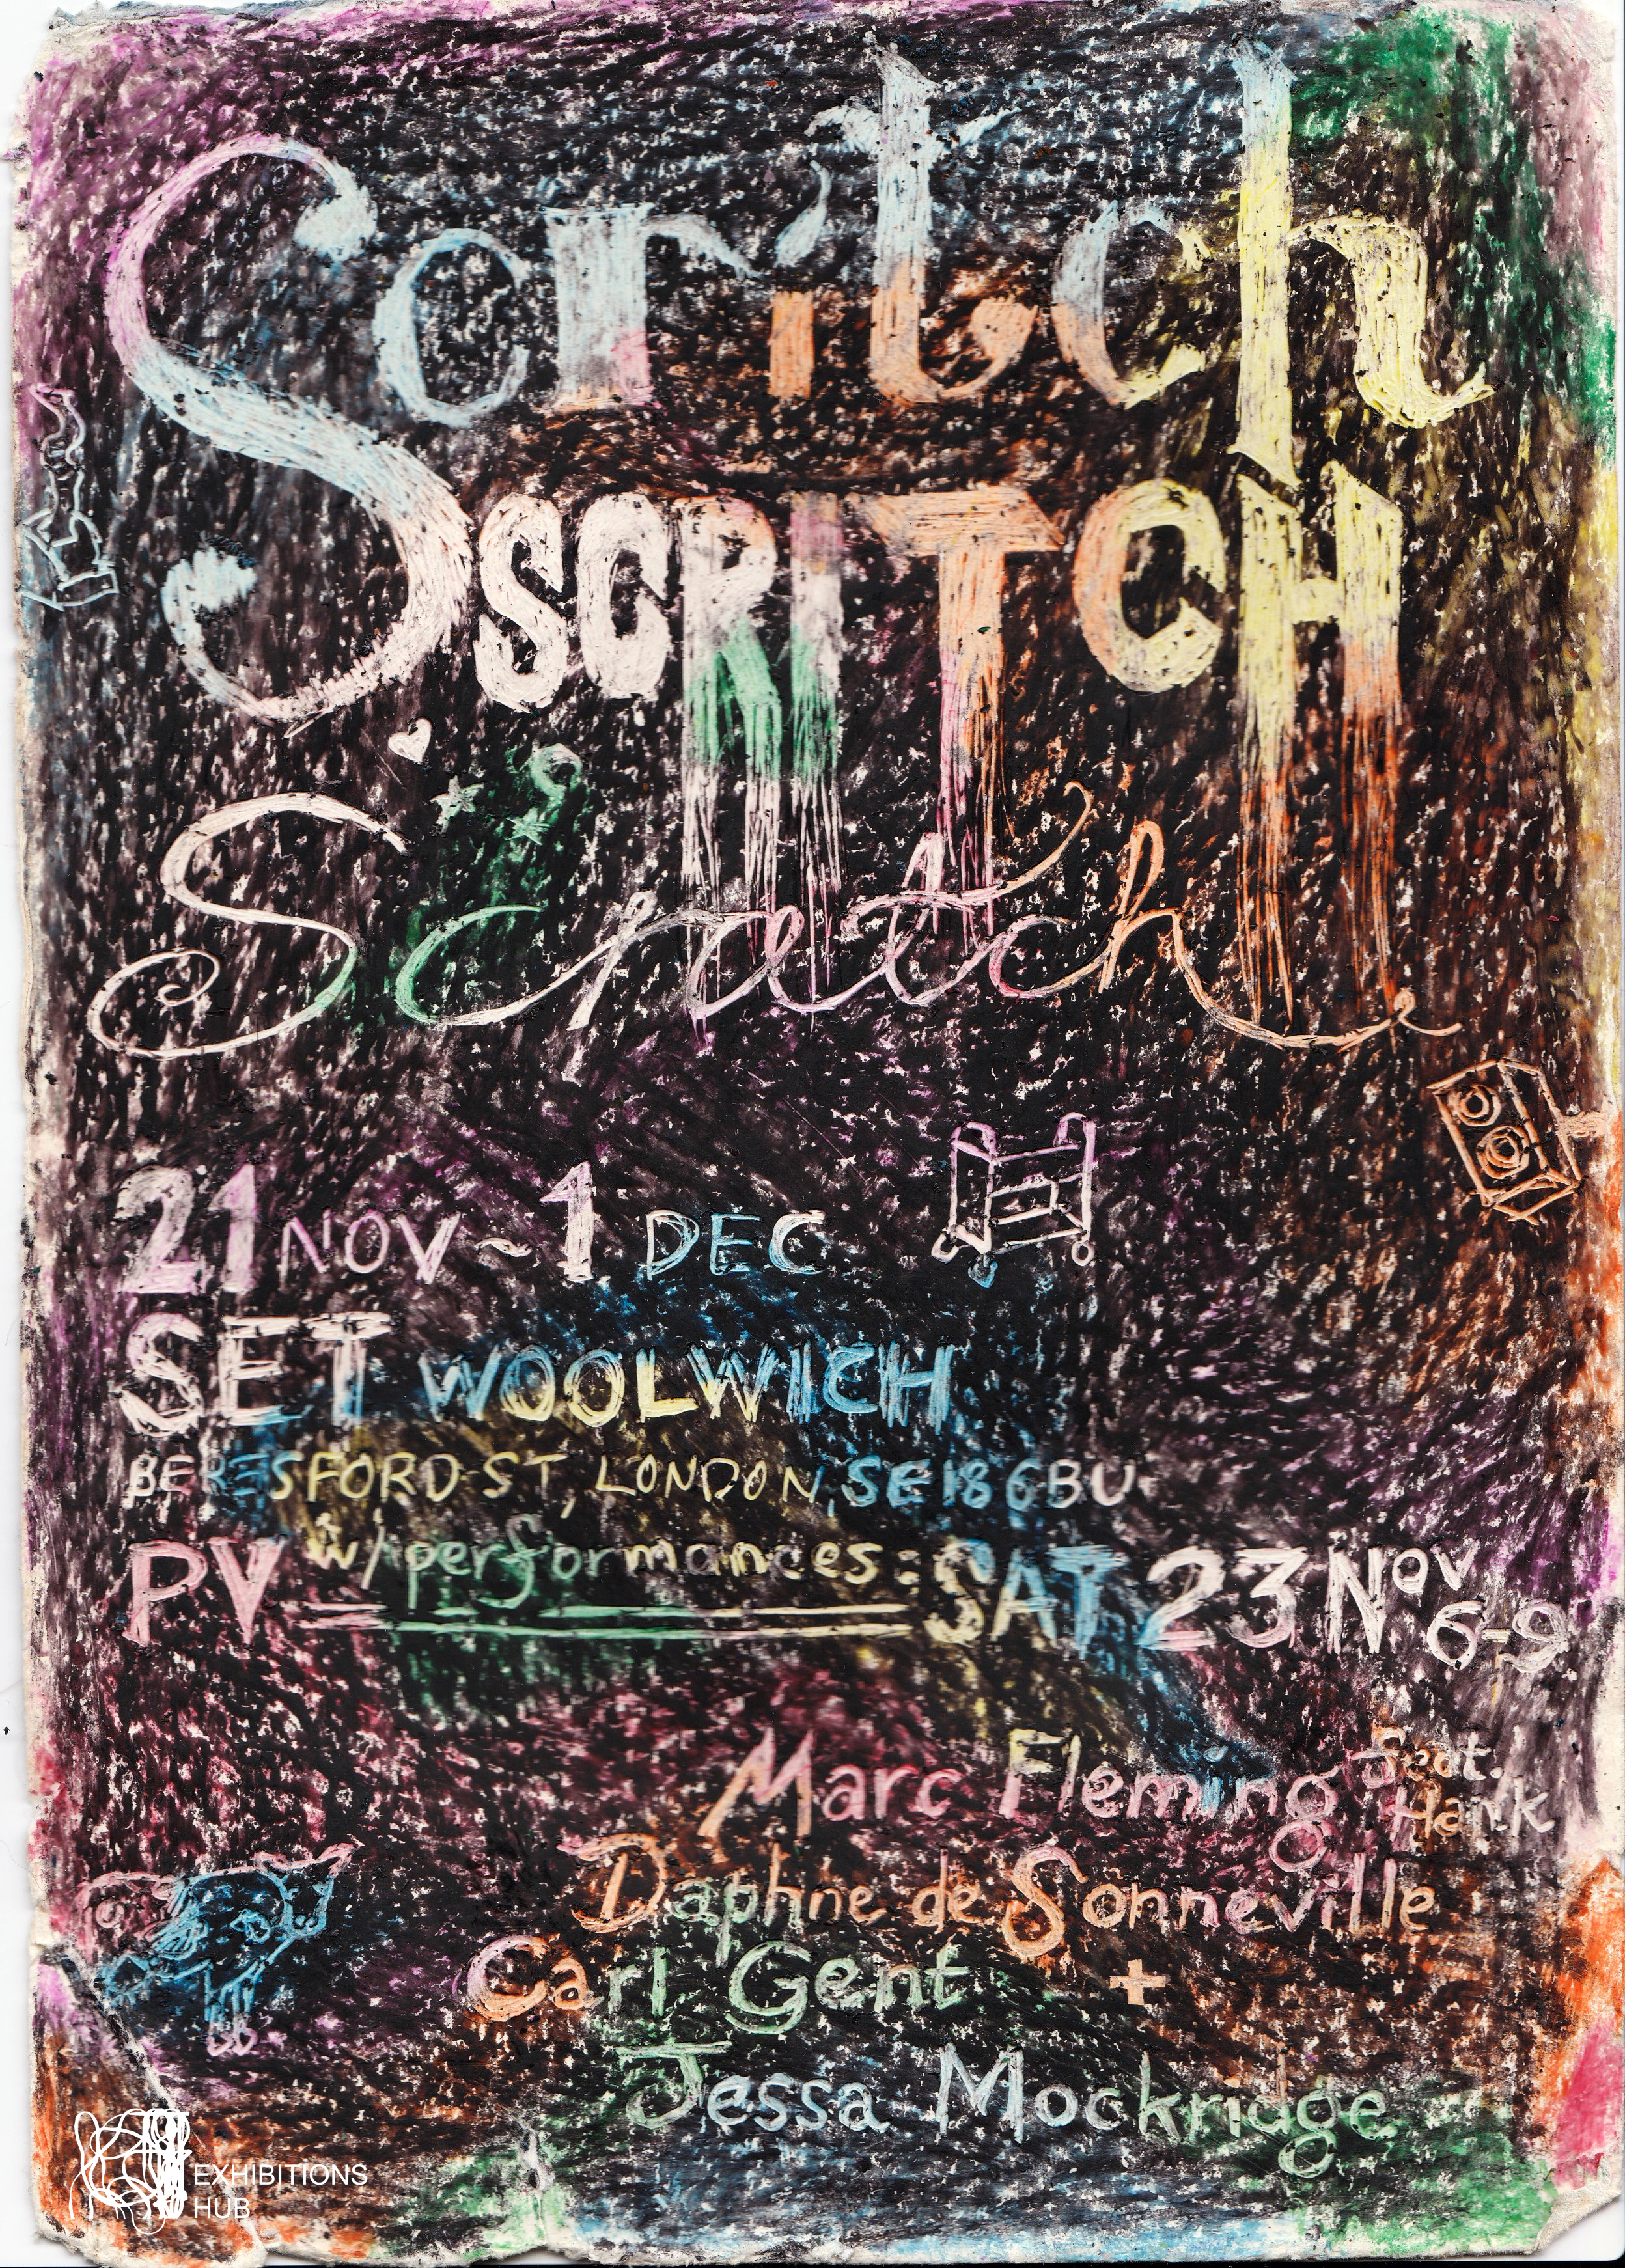 Scritch
SCRITCH
Scratch
21 NOV ~ 1 DEC
SET WOOLWICH
BERESFORD ST, LONDON, SE18 6BU
PV w/ performances: SAT 23 NOV 6-9
Marc Fleming feat. Hank
Daphne de Sonneville
Carl Gent +
Jessa Mockridge
EXHIBITIONS
HUB